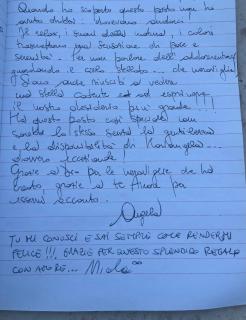 Quando ho scoperto questo posto non ho
avuto dubbi: dovevamo andarci.
Il relax, i suoni della natura, i colori
trasmettono una sensazione di pace e
serenità. Per non parlare dell'addormentarsi
guardando il cielo stellato... che meraviglia!
Siamo anche riusciti a vedere
una stella cadente ed ad esprimere
il nostro desiderio più grande!!!
Ma questo posto così speciale non
sarebbe lo stesso senza la gentilezza
e la disponibilità di
davvero eccezionale!
Grazie a per le meraviglie che ha
creato, grazie a te Amore per
essermi accanto.
Angela
TU MI CONOSCI E SAI SEMPRE COME RENDERMI
FELICE!!! GRAZIE PER QUESTO SPLENDIDO REGALO
CON AMORE...